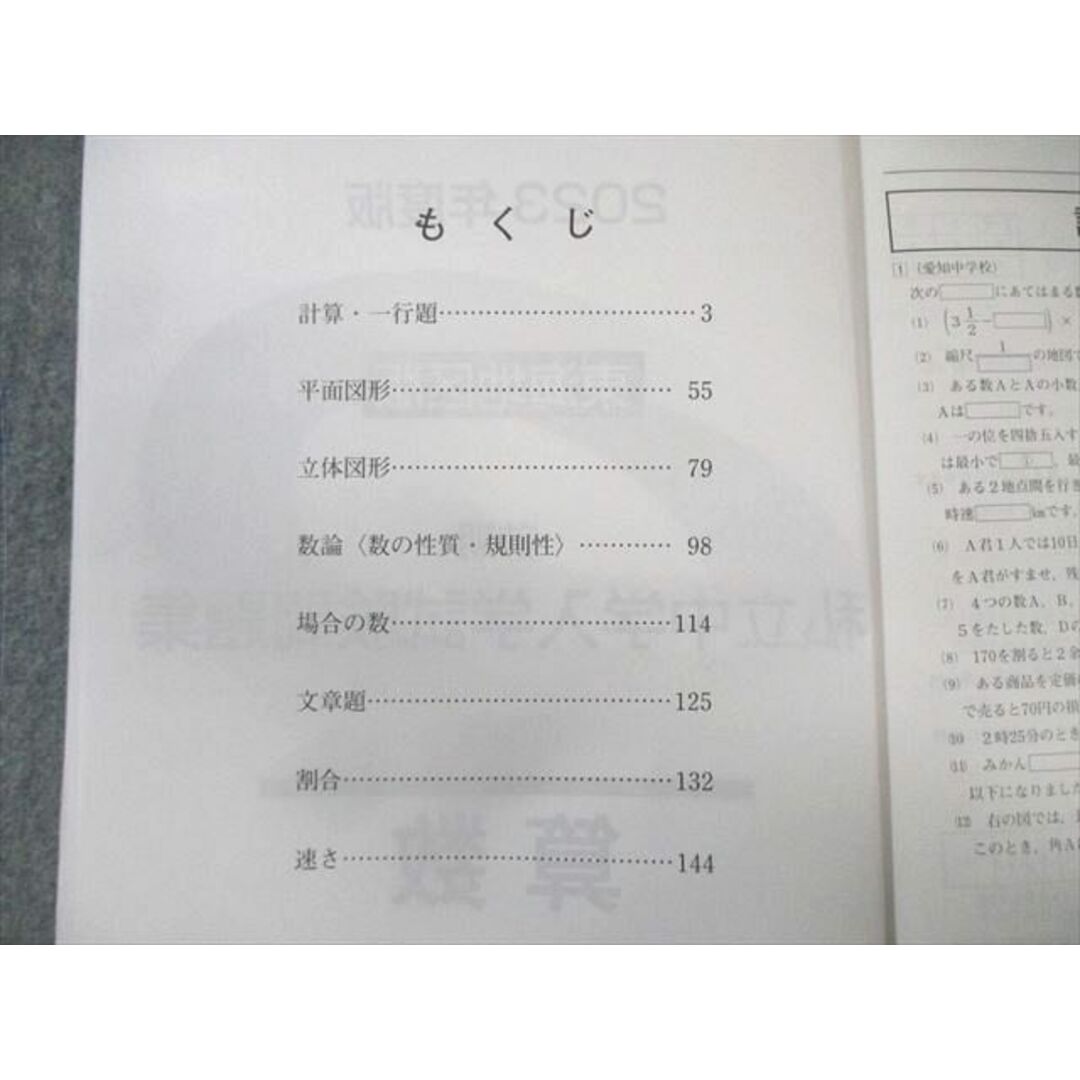 もくじ
計算・一行題……………………………3
平面図形……………………………… 55
立体図形……………………………… 79
数論〈数の性質・規則性〉………… 98
場合の数………………………………114
文章題…………………………………125
割合……………………………………132
速さ……………………………………144
2023年度版
私立中学入学試験問題集
算数
1 (愛知中学校)
次の□にあてはまる
(1) (3 1/2 − □) ×
(2) 縮尺 1/□ の地図
(3) ある数AとAの小数
Aは□です。
(4) 一の位を四捨五入す
は最小で ① 、最
(5) ある2地点間を行き
時速□kmです。
(6) A君1人では10日
をA君がすませ、残
(7) 4つの数A、B、
5をたした数、Dの
(8) 170を割ると2余
(9) ある商品を定価
で売ると70円の損
(10) 2時25分のとき
(11) みかん□
以下になりました
(12) 右の図では、
このとき、角A